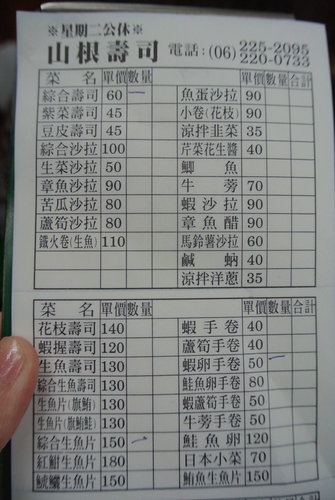 ※星期二公休※
山根壽司 電話:(06) 225-2095
220-0733
菜名 單價 數量 單價 數量 合計
綜合壽司 60 一 魚蛋沙拉 90
紫菜壽司 45 小卷(花枝) 90
豆皮壽司 45 涼拌韭菜 35
綜合沙拉 100 芹菜花生醬 40
生菜沙拉 50 鯽魚
章魚沙拉 90 牛蒡 70
苦瓜沙拉 80 蝦沙拉 90
蘆筍沙拉 80 章魚醋 90
鐵火卷(生魚) 110 馬鈴薯沙拉 60
鹹蚋 40
涼拌洋蔥 35
菜名 單價 數量 單價 數量 合計
花枝壽司 140 蝦手卷 40
蝦握壽司 120 蘆筍手卷 40
生魚壽司 130 蝦卵手卷 50 一
綜合生魚壽司 130 鮭魚卵手卷 80
生魚片(旗鮪) 130 蝦蘆筍手卷 50
生魚片(旗鮪鮭) 130 牛蒡手卷 50
綜合生魚片 150 一 鮭魚卵 120
紅魽生魚片 180 日本小菜 70
生魚片 150 鮪魚生魚片 150